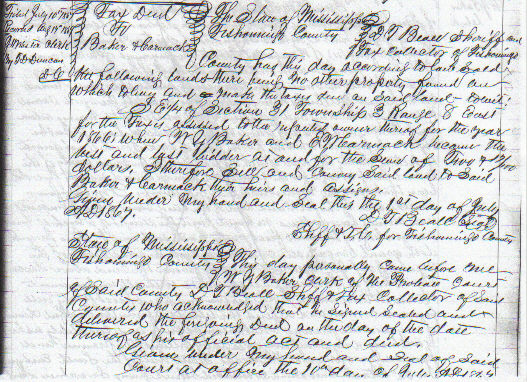 Filed July 10th 1867
Recorded Aug 19th 1867
Clerk
By J D Duncan
D.C.
Tax Deed
To
Baker & Carmack
The State of Mississippi
Tishomingo County
I, L T Beall Sheriff and
Tax Collector of Tishomingo
County has this day according to law sold
the following lands there being no other property found on
which to levy and make the taxes due on said land to wit:
of Section 31 Township 3 Range 8 East
for the Taxes assessed to the reputed owner thereof for the year
1866 When W Y Baker and Carmack became the
best and last bidder at and for the sum of Two & /100
dollars. I therefore sell and Convey Said land to Said
Baker & Carmack their heirs and assigns.
Given under my hand and Seal this the 1st day of July
AD 1867. L T Beall
Shff & T.C. for Tishomingo County
State of Mississippi
Tishomingo County This day personally came before me
W Y Baker Clerk of the Probate Court
of Said County L T Beall Shff & Tax Collector of Said
County who acknowledged that he Signed Sealed and
delivered the foregoing Deed on the day of the date
thereof as his official act and deed.
Given under my hand and Seal of Said
Court at office the 10th day of July AD 1867